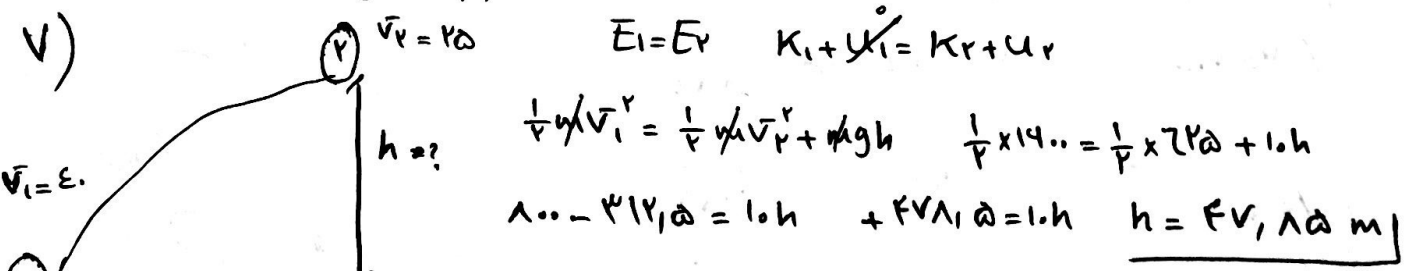 ۷)
۲ V۲ = ۲۵ E۱=E۲ K۱+U۱۰= K۲+U۲
h =? ۱/۲ mV۱^۲ = ۱/۲ mV۲^۲ + mgh ۱/۲ ×۱۶۰۰ = ۱/۲ × ۶۲۵ + ۱۰h
V۱=۴۰
۸۰۰ - ۳۱۲,۵ = ۱۰h + ۴۷۸,۵=۱۰h h = ۴۷,۸۵ m